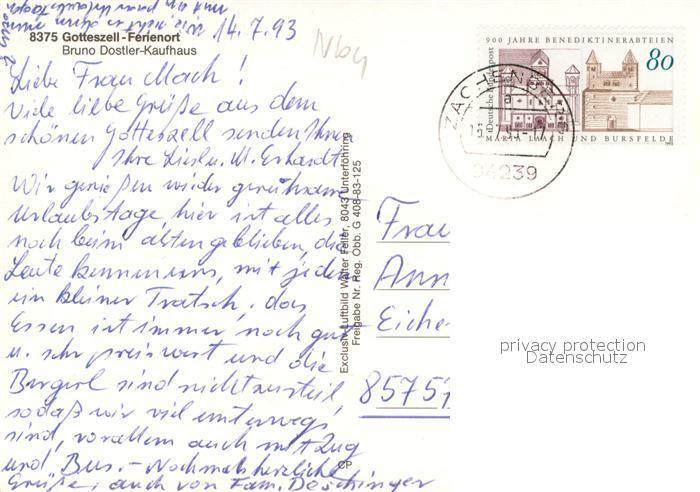 14.7.93
8375 Gotteszell-Ferienort
Bruno Dostler-Kaufhaus
Liebe Frau Mach!
Viele liebe Grüße aus dem
schönen Gotteszell senden Ihnen
Ihre Liesl u. M. Erhardt
Wir genießen wieder geruhsame
Urlaubstage, hier ist alles
noch beim alten geblieben, die
Leute kennen uns, mit jedem
ein kleiner Tratsch, das
Essen ist immer noch gut
u. sehr preiswert und die
Bergerl sind nicht zu steil
sodaß wir viel unterwegs
sind, vorallem auch mit Zug
und Bus.- Nochmals herzliche
Grüße, auch von Fam. Deschinger
Exclusiv-Luftbild Walter Feller, 8043 Unterföhring
Freigabe Nr. Reg. Obb. G 408-83-125
CP
900 JAHRE BENEDIKTINERABTEIEN
80
Deutsche Bundespost
MARIA LAACH UND BURSFELDE
94239
Frau
Ann
Eiche
85757
privacy protection
Datenschutz